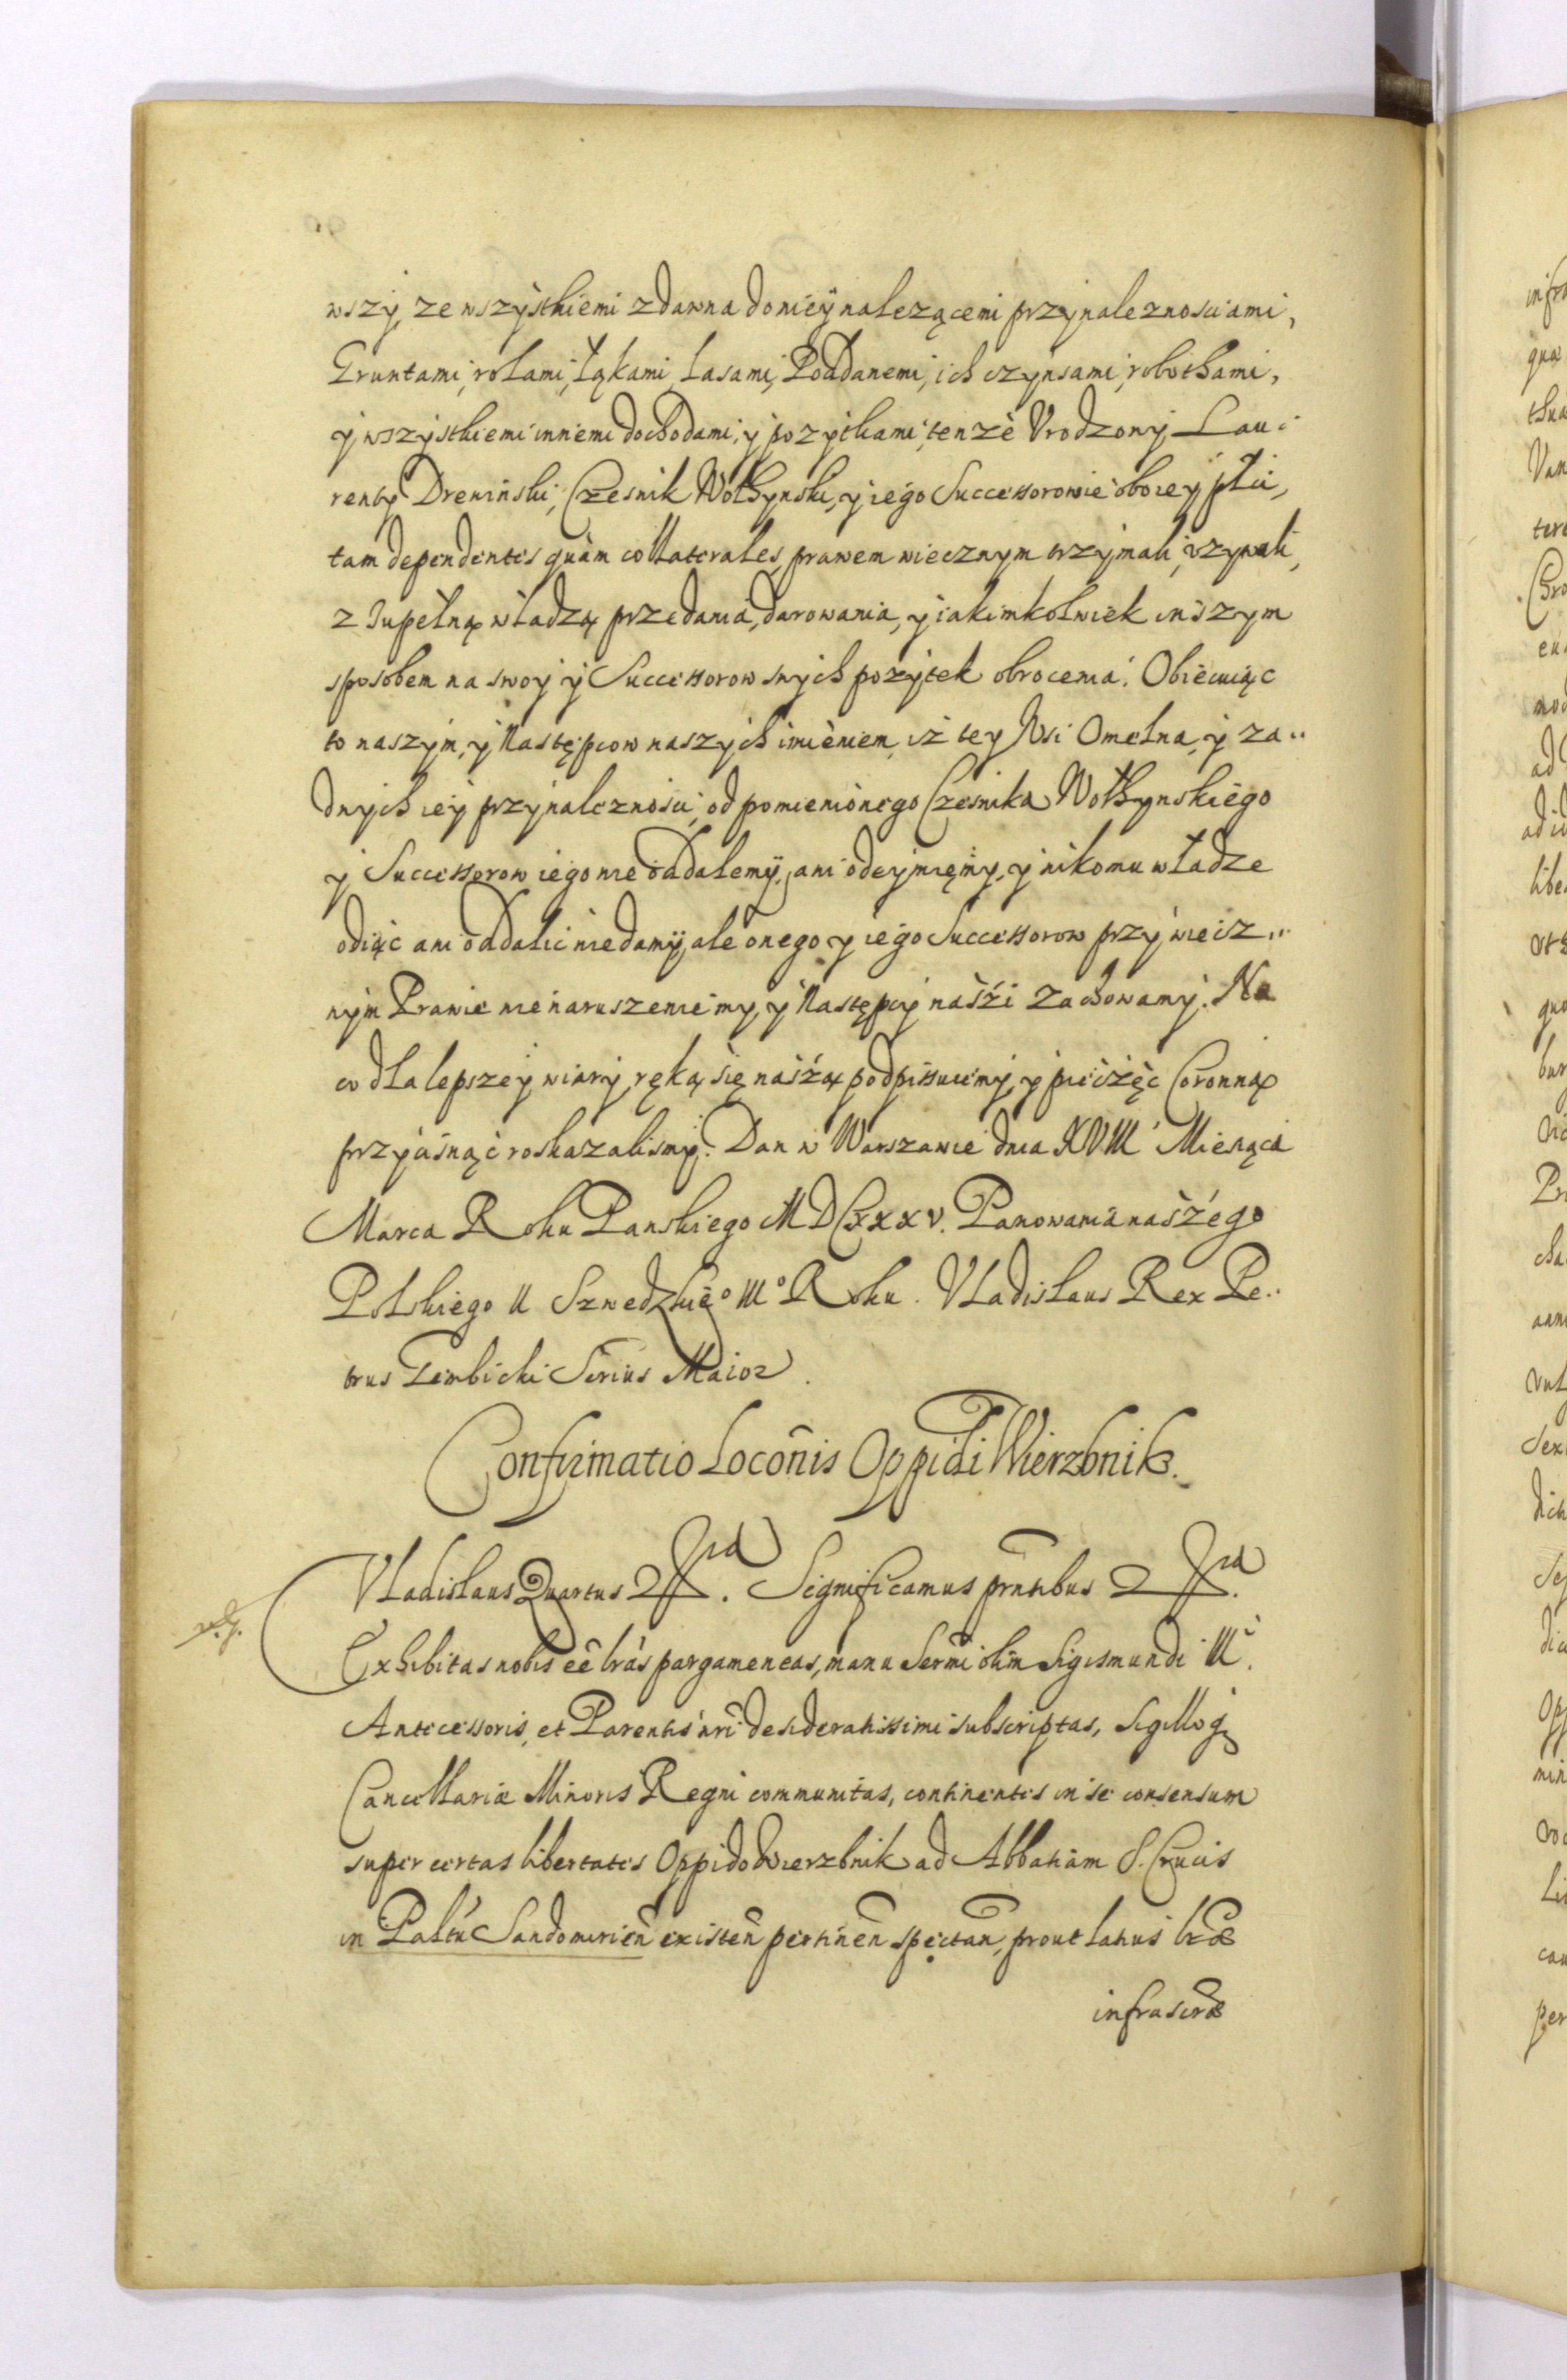 wszy, ze wszystkiemi zdawna do niey należącemi przynaleznosciami,
Gruntami, rolami, łąkami, Lasami, Poddanemi, ich czynsami, robothami,
y wszystkiemi innemi dochodami, y pozytkami, tenze Vrodzony Lau-
renty Drewiński, Czesnik Wołhynski, y iego Successorowie oboiey płci,
tam dependentes quàm collaterales, prawem wiecznym trzymali, vzywali,
z zupełną władzą przedania, darowania, y iakimkolwiek inszym
sposobem na swoy y Successorow swych pozytek obrocenia. Obiecuiąc
to naszym, y Następcow naszych imieniem, iż tey Wsi Omelna, y za..
dnych iey przynaleznosci, od pomienionego Czesnika Wołhynskiego
y Successorow iego nie oddalemy, ani odeymięmy, y nikomu władze
odiąc ani oddalic niedamy, ale onego y iego Successorow przy wiecz..
nym Prawie nienaruszenie my, y Następcy naszi zachowamy. Na
co dla lepszey wiary, ręką się naszą podpissuiemy, y pieczęc Coronną
przycisnąć roskazalismy. Dan w Warszawie dnia XVIII Miesiąca
Marca Roku Panskiego MDCxxxv. Panowania naszego
Polskiego II Szwedzkiēo IIIo Roku. Vladislaus Rex Pe..
trus Gembicki Scrius Maior.
Confirmatio Locōnis Oppidi Wierzbnik.
Vladislaus Quartus &ra. Significamus prñtibus &ra.
Exhibitas nobis eē lrās pargameneas, manu Serm̄i olim Sigismundi III.
Antecessoris, et Parentis nr̄i desideratissimi subscriptas, Sigilloq;
Cancellariæ Minoris Regni communitas, continentes in se consensum
super certas libertates Oppido Wierzbnik ad Abbatiam S. Crucis
in Paltū Sandomirien̄ existen̄ pertinen̄ spectan̄, prout latius lræ
infrascræ